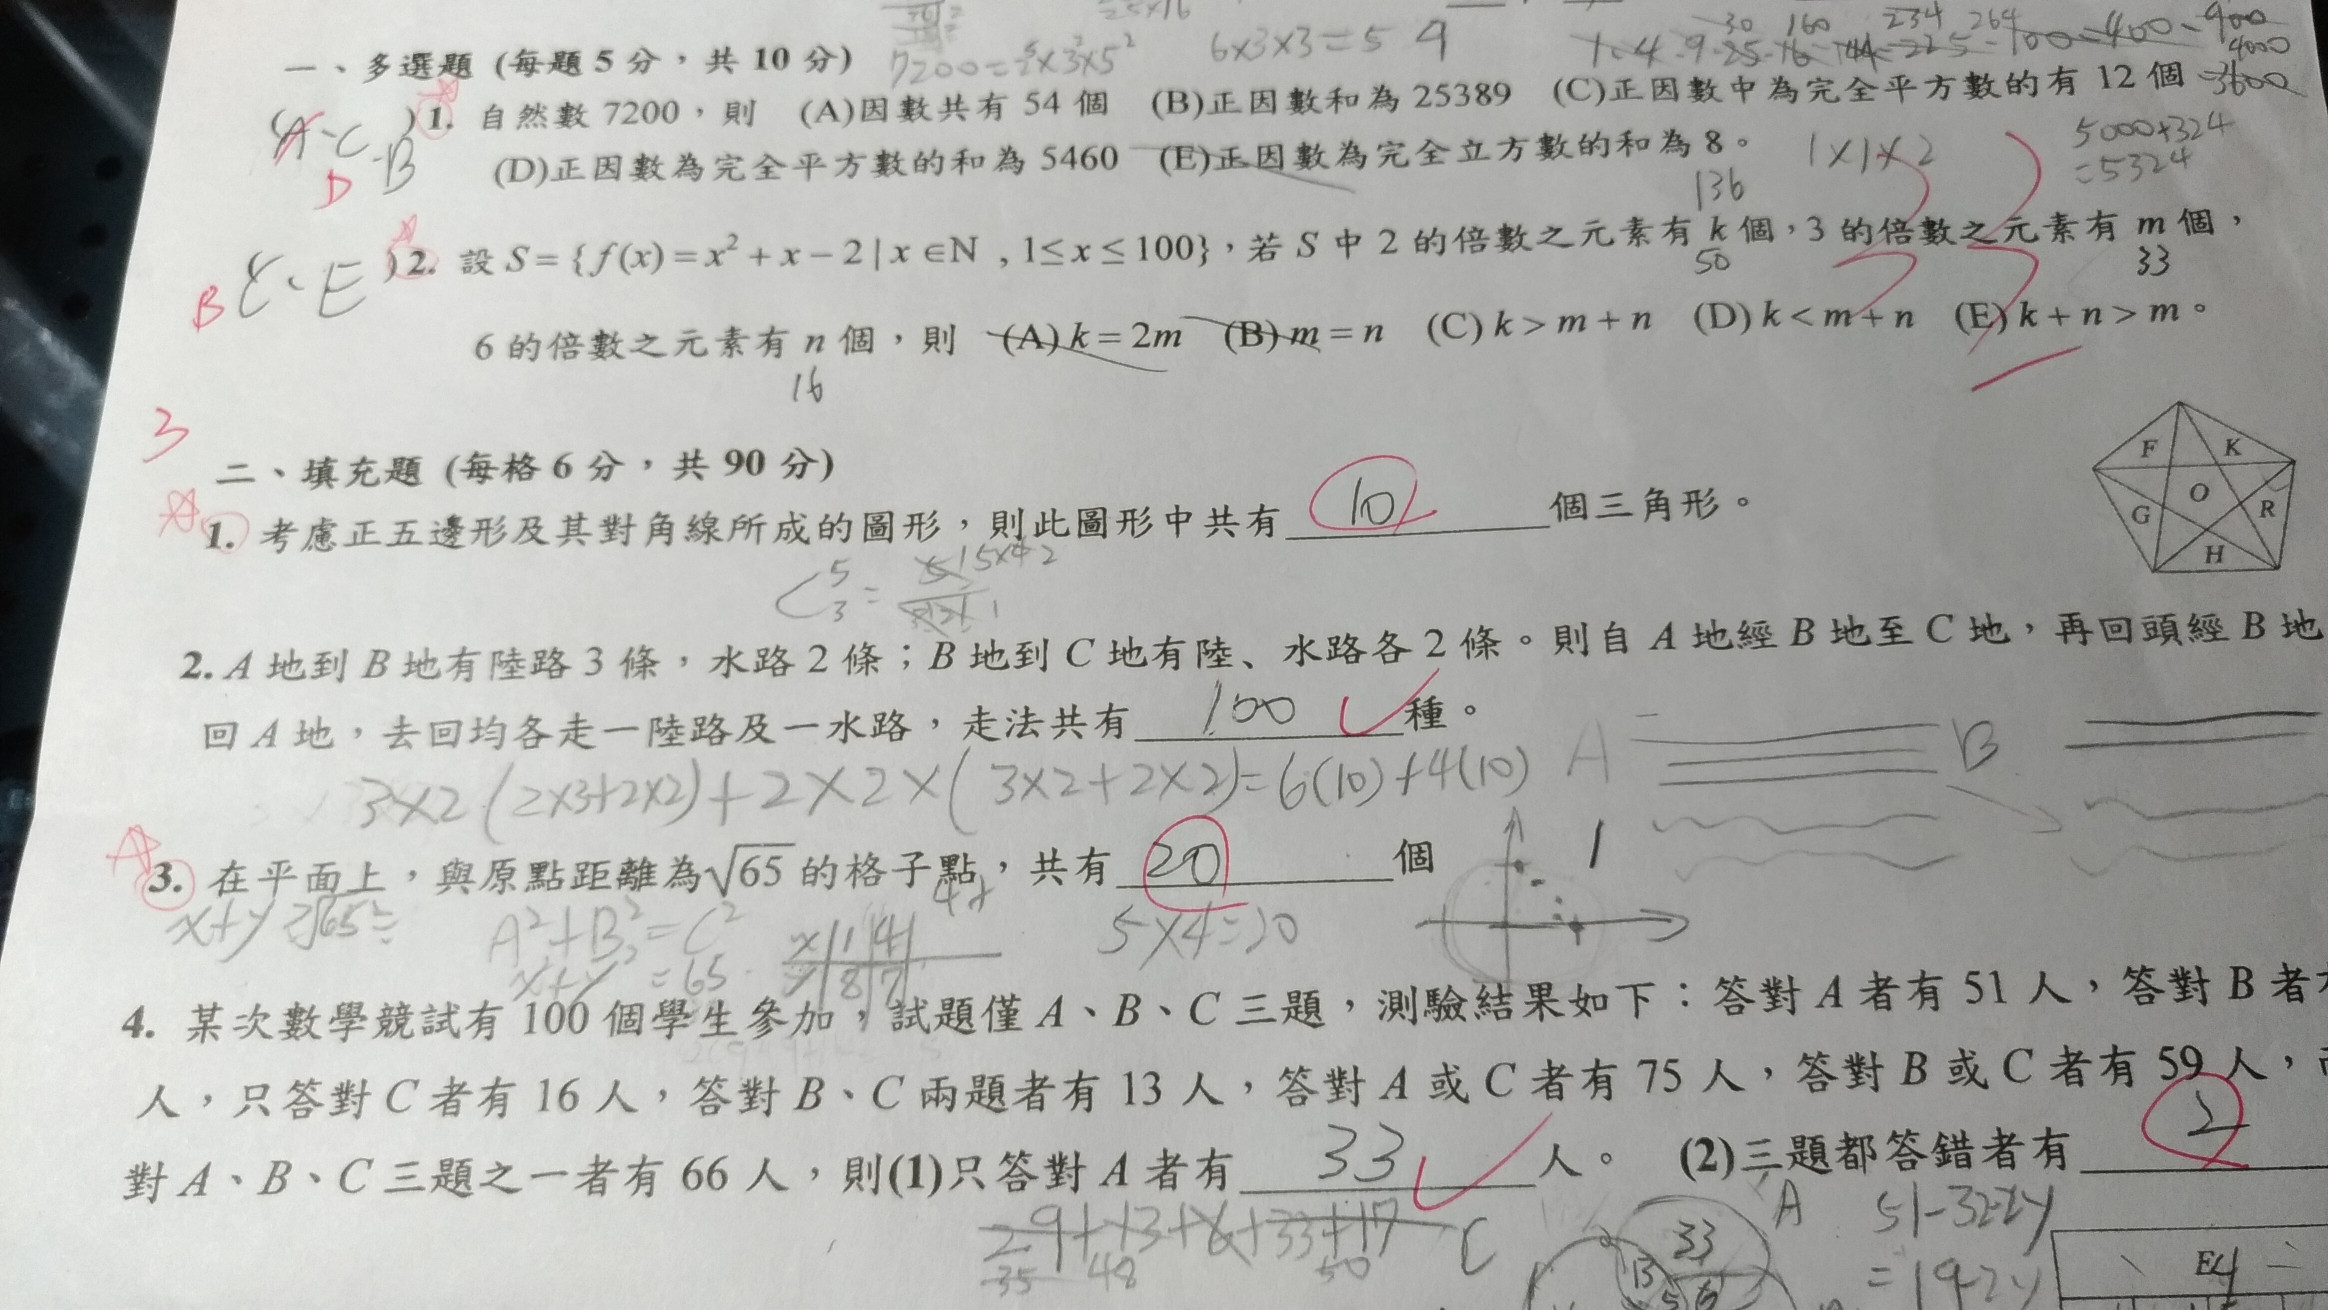 一、多選題 (每題 5 分，共 10 分)
7200=2⁵×3²×5²
6×3×3=54
( A、C、B ) 1. 自然數 7200，則 (A)因數共有 54 個 (B)正因數和為 25389 (C)正因數中為完全平方數的有 12 個
D
(D)正因數為完全平方數的和為 5460 (E)正因數為完全立方數的和為 8。
1×1×2
5000+324
=5324
136
B C、E ) 2. 設 S={f(x)=x²+x−2|x∈N , 1≤x≤100}，若 S 中 2 的倍數之元素有 k 個，3 的倍數之元素有 m 個，
50
33
6 的倍數之元素有 n 個，則 (A) k=2m (B) m=n (C) k>m+n (D) k<m+n (E) k+n>m。
16
3
二、填充題 (每格 6 分，共 90 分)
1. 考慮正五邊形及其對角線所成的圖形，則此圖形中共有 10 個三角形。
F K
O
G R
H
2. A 地到 B 地有陸路 3 條，水路 2 條；B 地到 C 地有陸、水路各 2 條。則自 A 地經 B 地至 C 地，再回頭經 B 地
回 A 地，去回均各走一陸路及一水路，走法共有 100 種。
A B
3×2(2×3+2×2)+2×2×(3×2+2×2)=6(10)+4(10)
3. 在平面上，與原點距離為√65 的格子點，共有 20 個
A²+B²=C²
x²+y²=65
x 1 4
y 8 7
5×4=20
4. 某次數學競試有 100 個學生參加，試題僅 A、B、C 三題，測驗結果如下：答對 A 者有 51 人，答對 B 者
人，只答對 C 者有 16 人，答對 B、C 兩題者有 13 人，答對 A 或 C 者有 75 人，答對 B 或 C 者有 59 人，
對 A、B、C 三題之一者有 66 人，則(1)只答對 A 者有 33 人。 (2)三題都答錯者有 2
A
C
33
13
51-32-2y
=19-2y